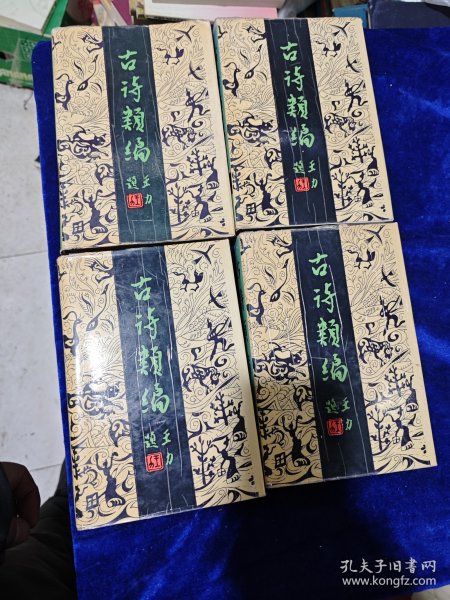 古诗類编
王力
题
古诗類编
王力
题
古诗類编
王力
题
古诗類编
王力
题
孔夫子旧书网
www.kongfz.com